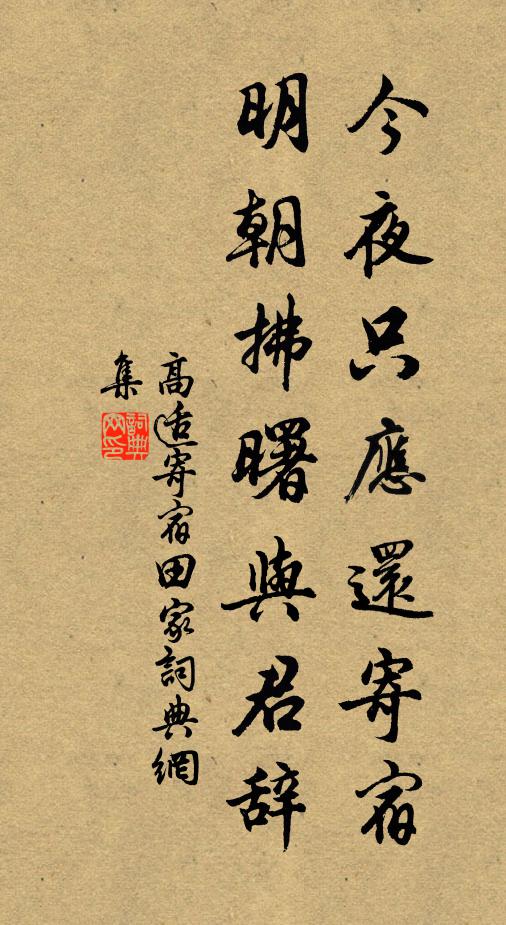 今夜只應還寄宿
明朝拂曙與君辞
高适寄宿田家詞典網
集
詞典網印